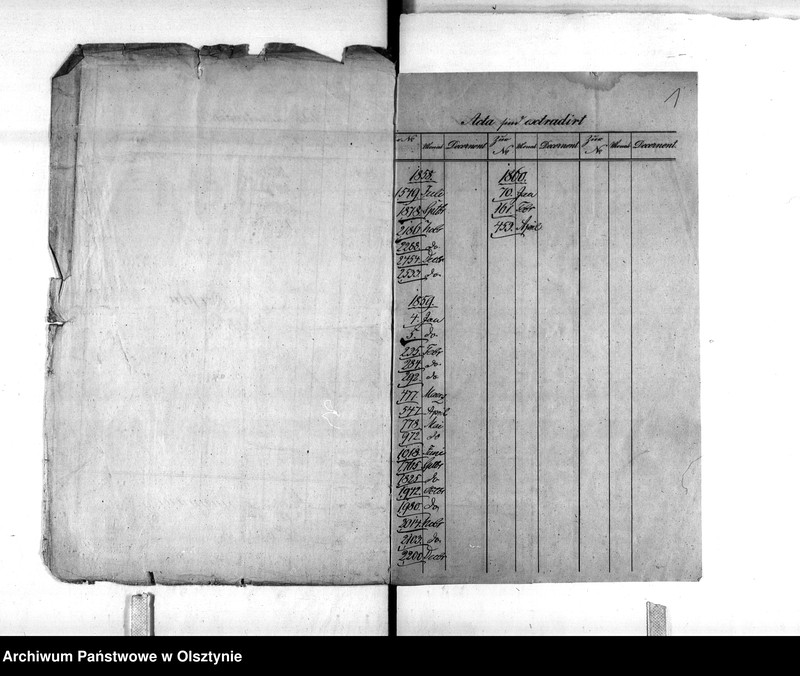 1
Acta sind extradirt
Nr Monat Decernent. Zur Nr Monat Decernent. Zur Nr Monat Decernent.
1858. 1860.
1549. Juli 70. Jan
1878. Septbr 161. Febr
2186. Novbr 453. April
2268. do.
2454. Decbr
2533. do.
1859.
4. Jan
5. do.
235. Febr
284. do.
292. do
477. Maerz
547. April
778. Mai
972. do
1013. Juni
1705. Septbr
1825. do
1942. Octbr
1980. do.
2014. Novbr
2103. do.
2200. Decbr
Archiwum Państwowe w Olsztynie